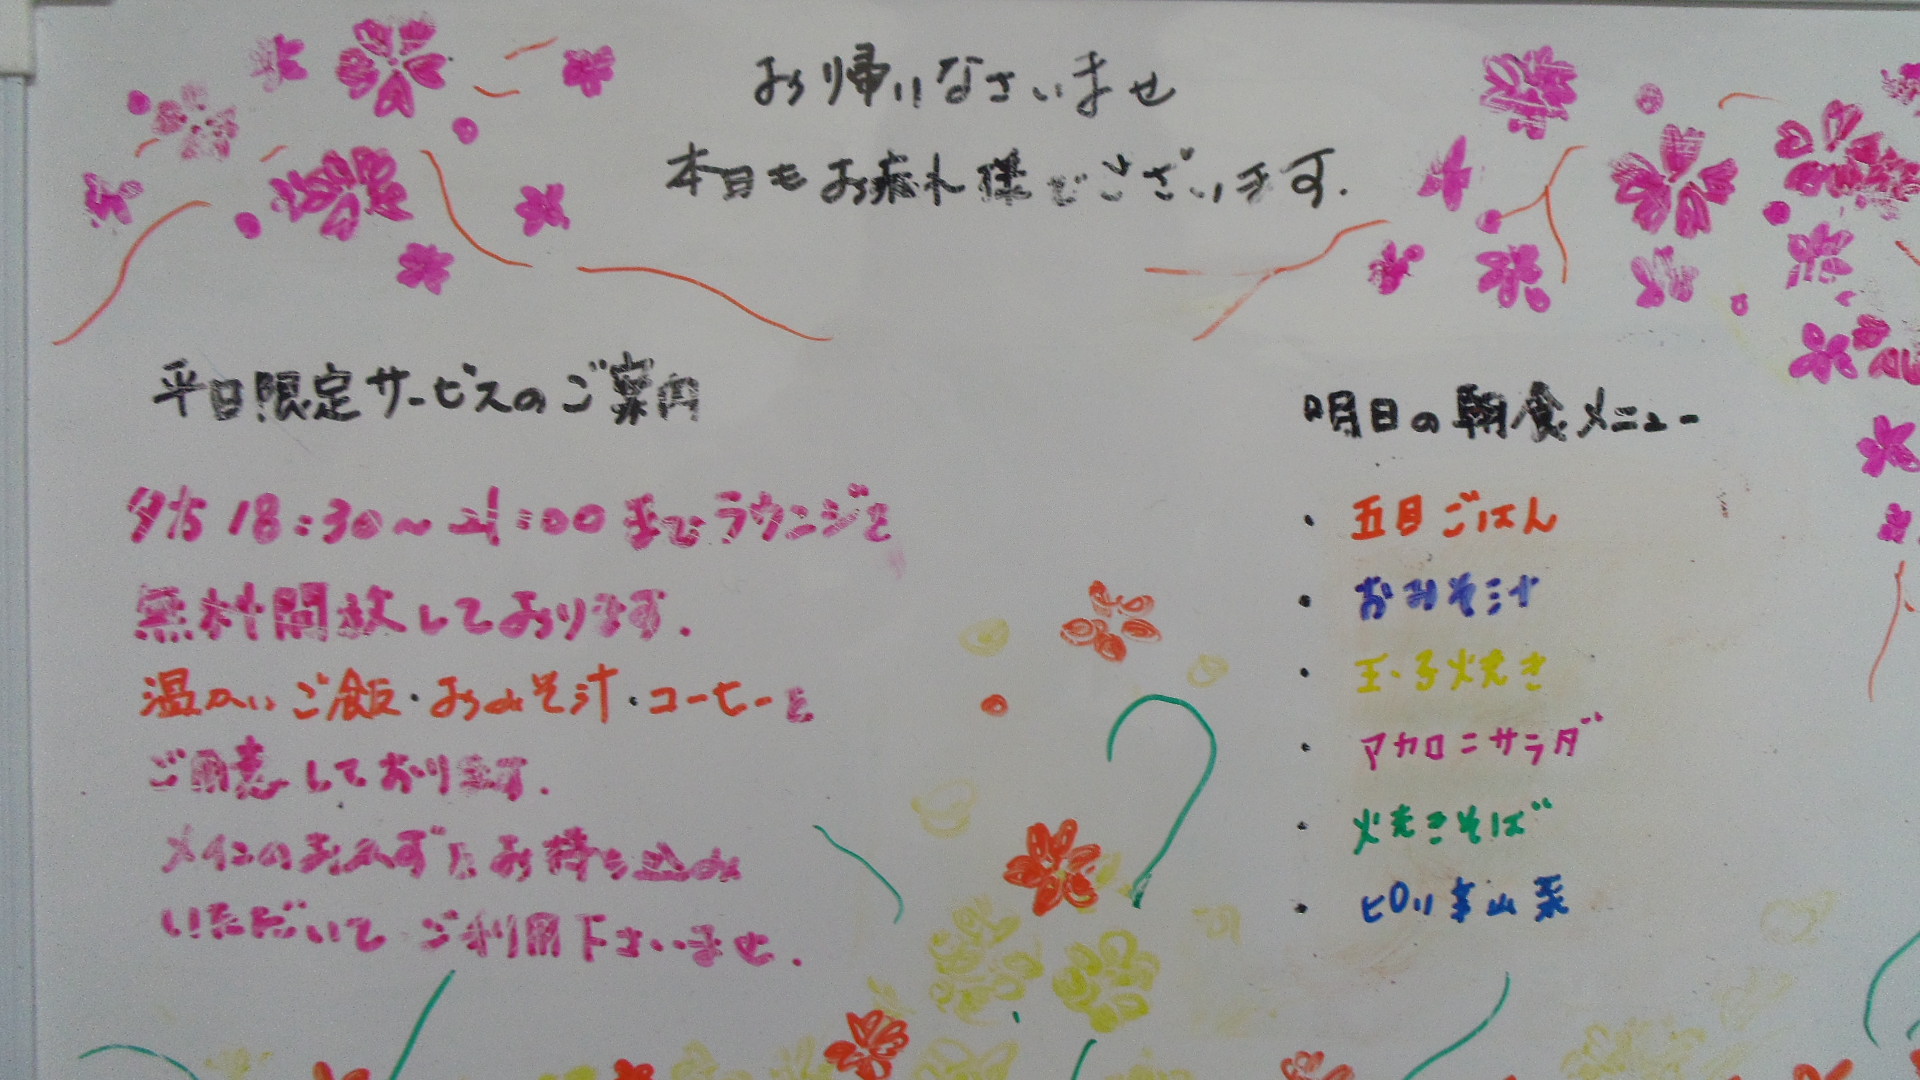 お帰りなさいませ
本日もお疲れ様でございます.
平日限定サービスのご案内
夕方 18:30～21:00 までラウンジを
無料開放しております.
温かいご飯・おみそ汁・コーヒーを
ご用意しております.
メインのおかずはお持ち込み
いただいて ご利用下さいませ.
明日の朝食メニュー
・五目ごはん
・おみそ汁
・玉子焼き
・マカロニサラダ
・焼きそば
・ピリ辛山菜